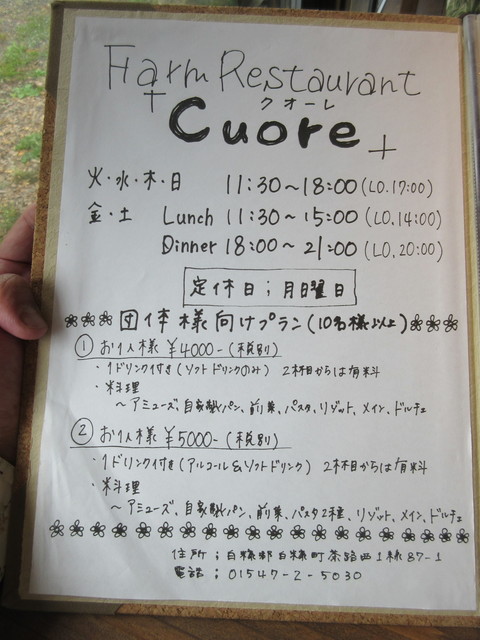 Farm Restaurant
クオーレ
Cuore
火・水・木・日 11:30～18:00 (LO.17:00)
金・土 Lunch 11:30～15:00 (LO.14:00)
Dinner 18:00～21:00 (LO.20:00)
定休日；月曜日
団体様向けプラン(10名様以上)
① お1人様 ¥4000-(税別)
・1ドリンク付き(ソフトドリンクのみ) 2杯目からは有料
・料理
～アミューズ、自家製パン、前菜、パスタ、リゾット、メイン、ドルチェ
② お1人様 ¥5000-(税別)
・1ドリンク付き(アルコール&ソフトドリンク) 2杯目からは有料
・料理
～アミューズ、自家製パン、前菜、パスタ2種、リゾット、メイン、ドルチェ
住所；白糠郡白糠町茶路西1線87-1
電話；01547-2-5030